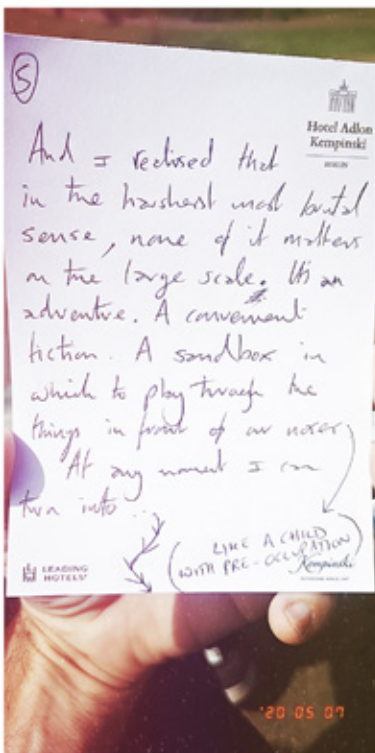 5
Hotel Adlon
Kempinski
BERLIN
And I realised that
in the harshest most brutal
sense, none of it matters
on the large scale. It's an
adventure. A convenient
fiction. A sandbox in
which to play through the
things in front of our noses
At any moment I can
turn into...
(LIKE A CHILD
WITH PRE-OCCUPATION)
LEADING
HOTELS
Kempinski
'20 05 07